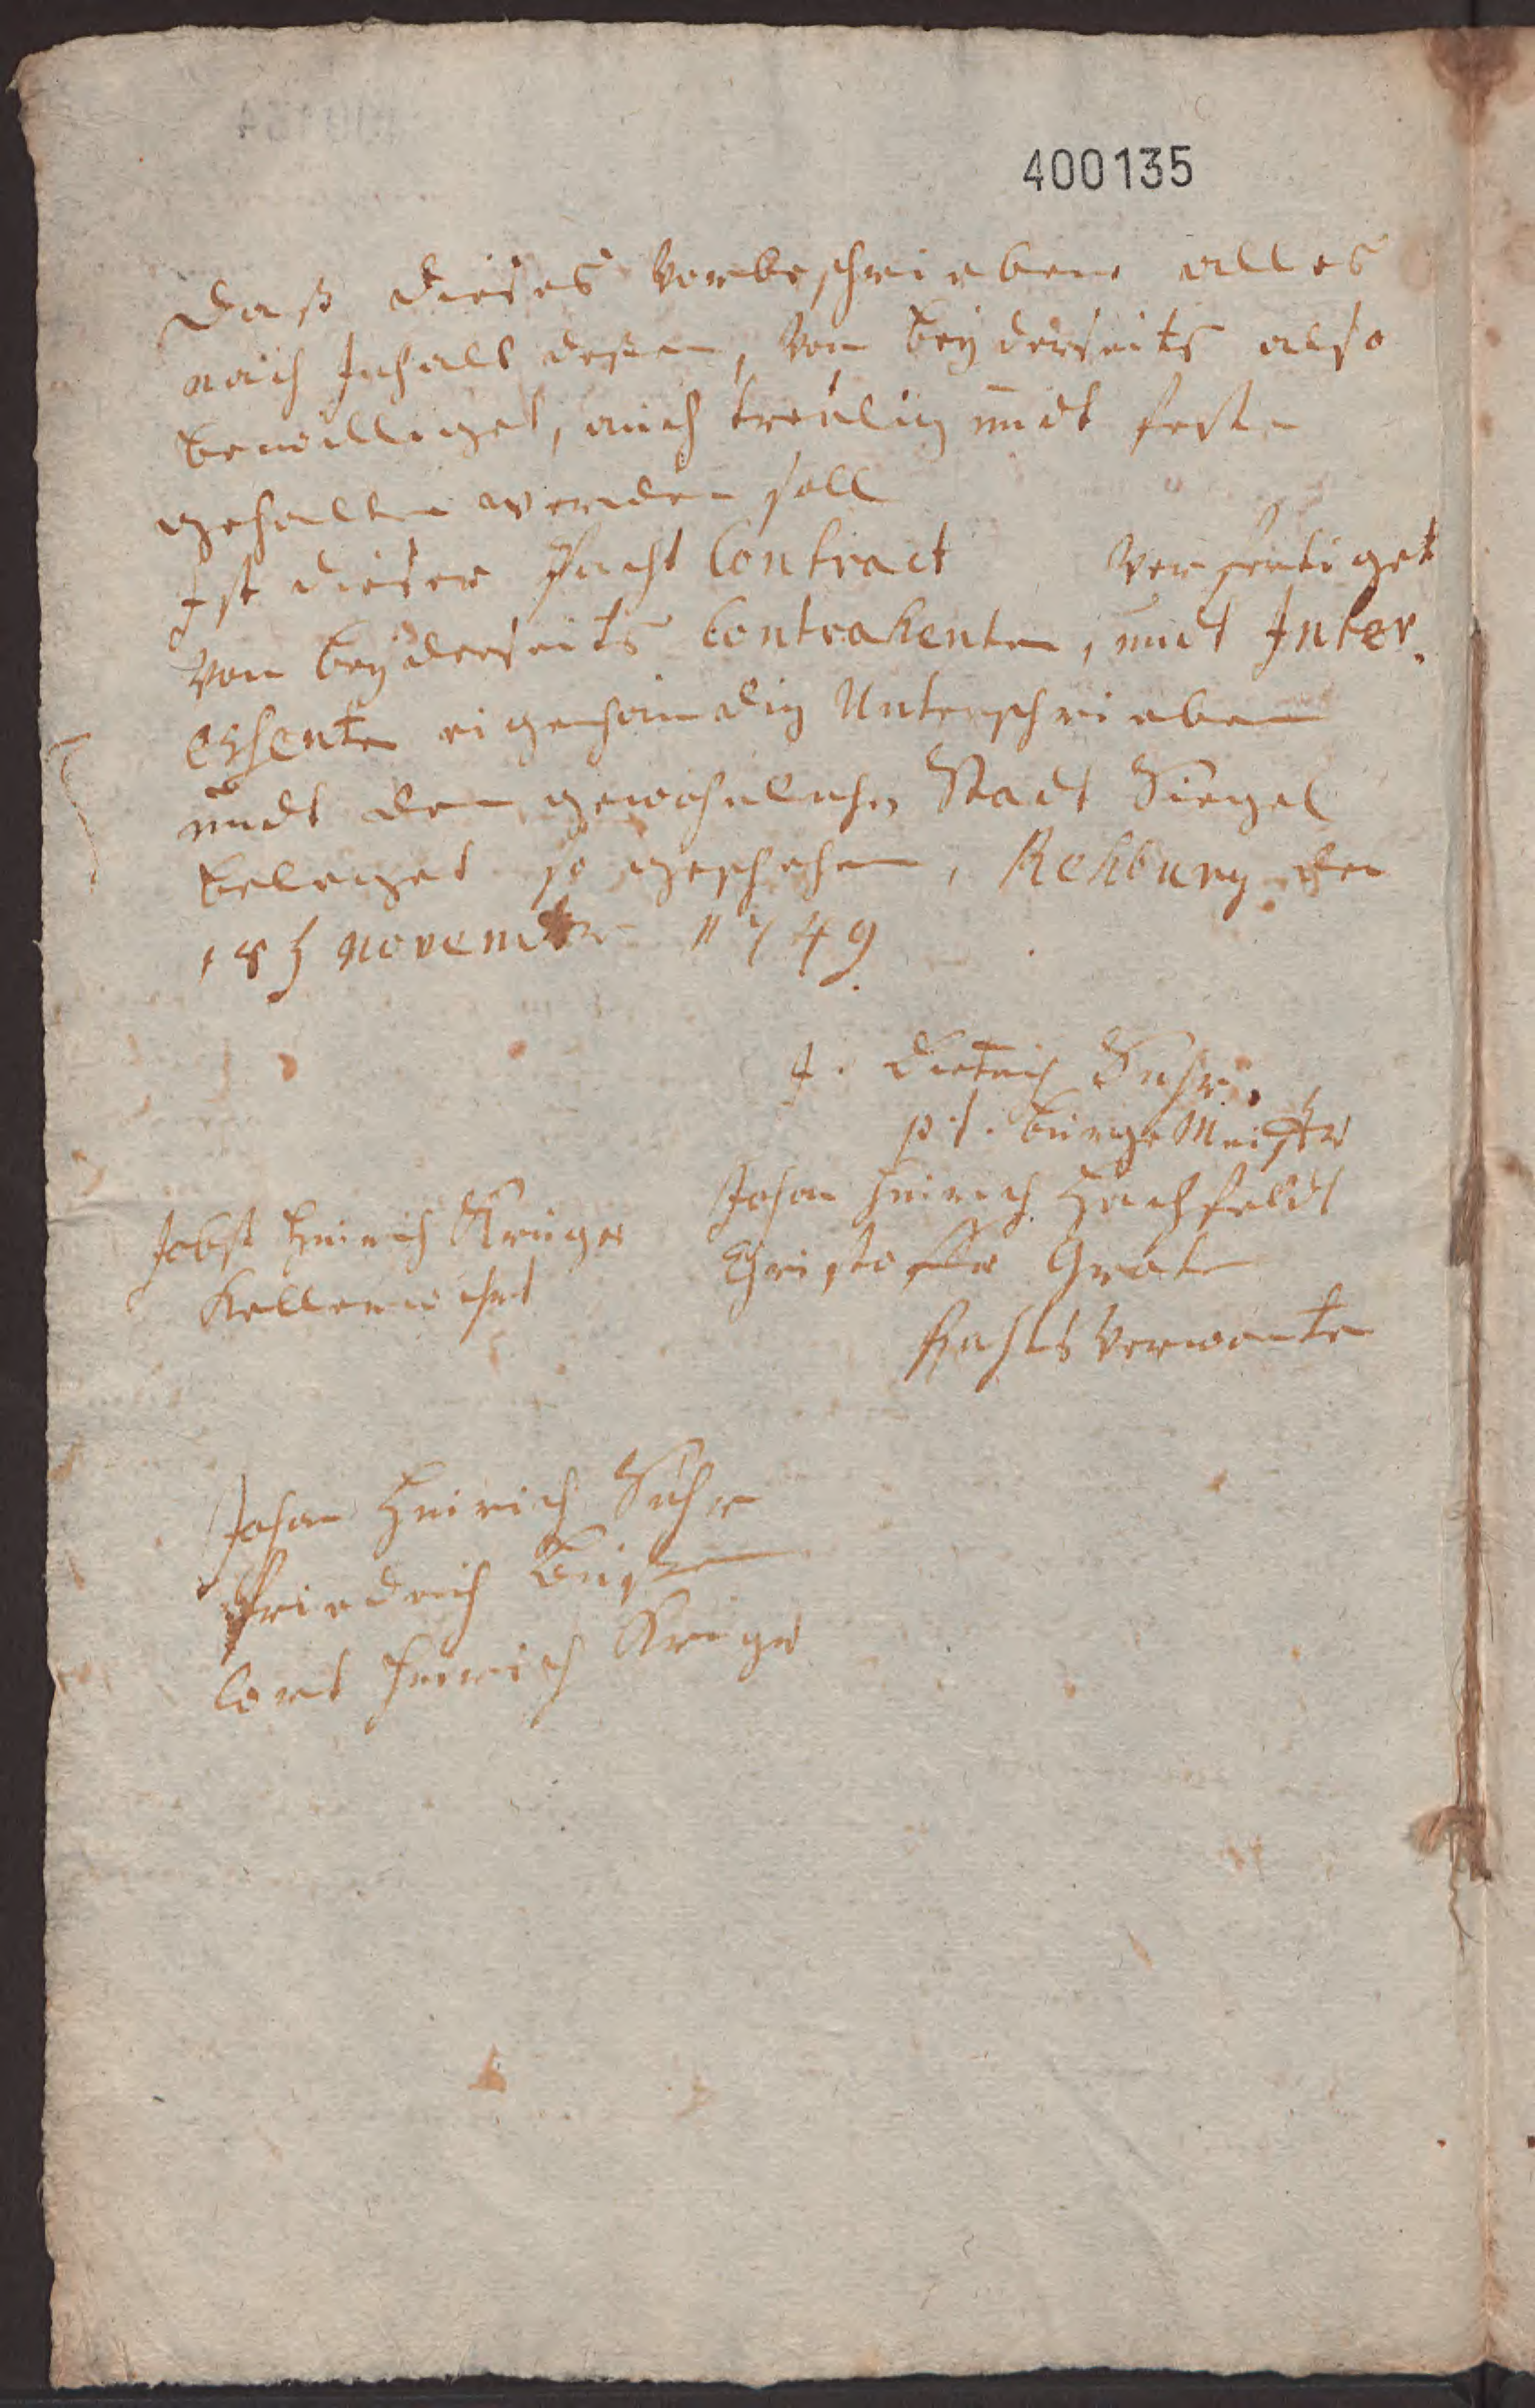 400135
Daß dieses Vorbeschriebene alles
nach Inhalt deßen, Von beyderseits also
bewilliget, auch treulig undt feste
gehalten werden soll
Ist dieser Pacht Contract Verfertiget
Von beyderseits Contrahenten, undt Inter,
essenten eigenhändig Unterschrieben
undt dem gewöhnlichen Stadt Siegel
beleget so geschehen, Rehburg den
18 November 1749
J. Dietrich Suhr,
p.t. BürgeMeister
Johan Heinrich Hachfeldt
Jobst Heinrich Krüger
Christoffer Grote
Kellerwihrt
Rahts Verwante
Johan Heinrich Suhr
Friedrich Bußen
Cort Henrich Krüger